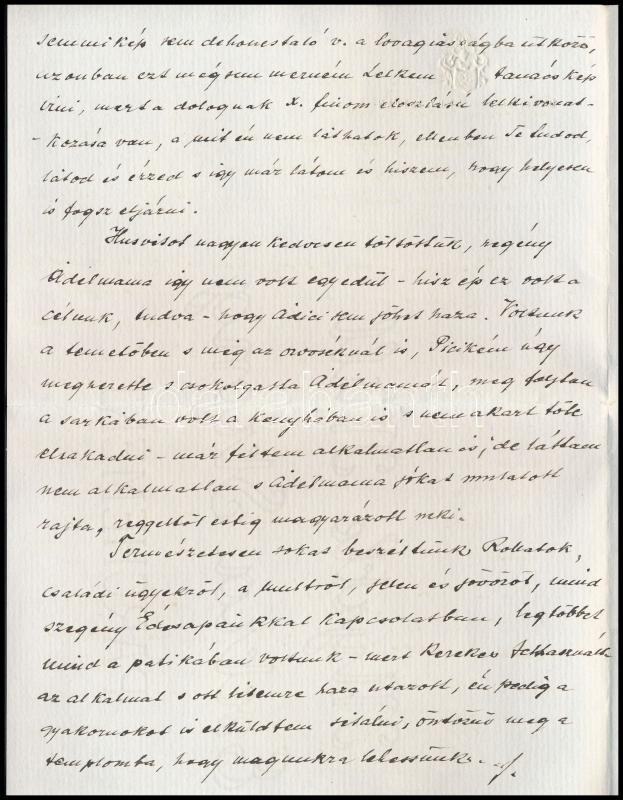 semmikép sem dehonestaló v. a lovagiasságba ütköző,
azonban ezt mégsem merném Lelkem tanácskép
írni, mert a dolognak x. finom eloszlású lelki vonat-
-kozása van, a mit én nem láthatok, ellenben Te tudod,
látod és érzed s így már látom és hiszem, hogy helyesen
is fogsz eljárni.
Husvisot nagyon kedvesen töltöttük, szegény
Adélmama így nem volt egyedül - hisz ép ez volt a
célunk, tudva - hogy Adici sem jöhet haza. Voltunk
a temetőben s még az orvoséknál is, Picikém úgy
megszerette s csókolgatta Adélmamát, meg folyton
a sarkában volt a konyhában is s nem akart tőle
elszakadni - már féltem alkalmatlan is; de láttam
nem alkalmatlan s Adélmama jókat mulatott
rajta, reggeltől estig magyarázott neki.
Természetesen sokat beszéltünk Rólatok,
családi ügyekről, a multról, jelen és jövőről, mind
szegény Édesapánkkal kapcsolatban, legtöbbet
mind a patikában voltunk - mert Kerekes
az alkalmat s ott haza utazott, én pedig a
gyakornokot is elküldtem sétálni, öntözni meg a
templomba, hogy magunkra lehessünk. ./.
darabanth